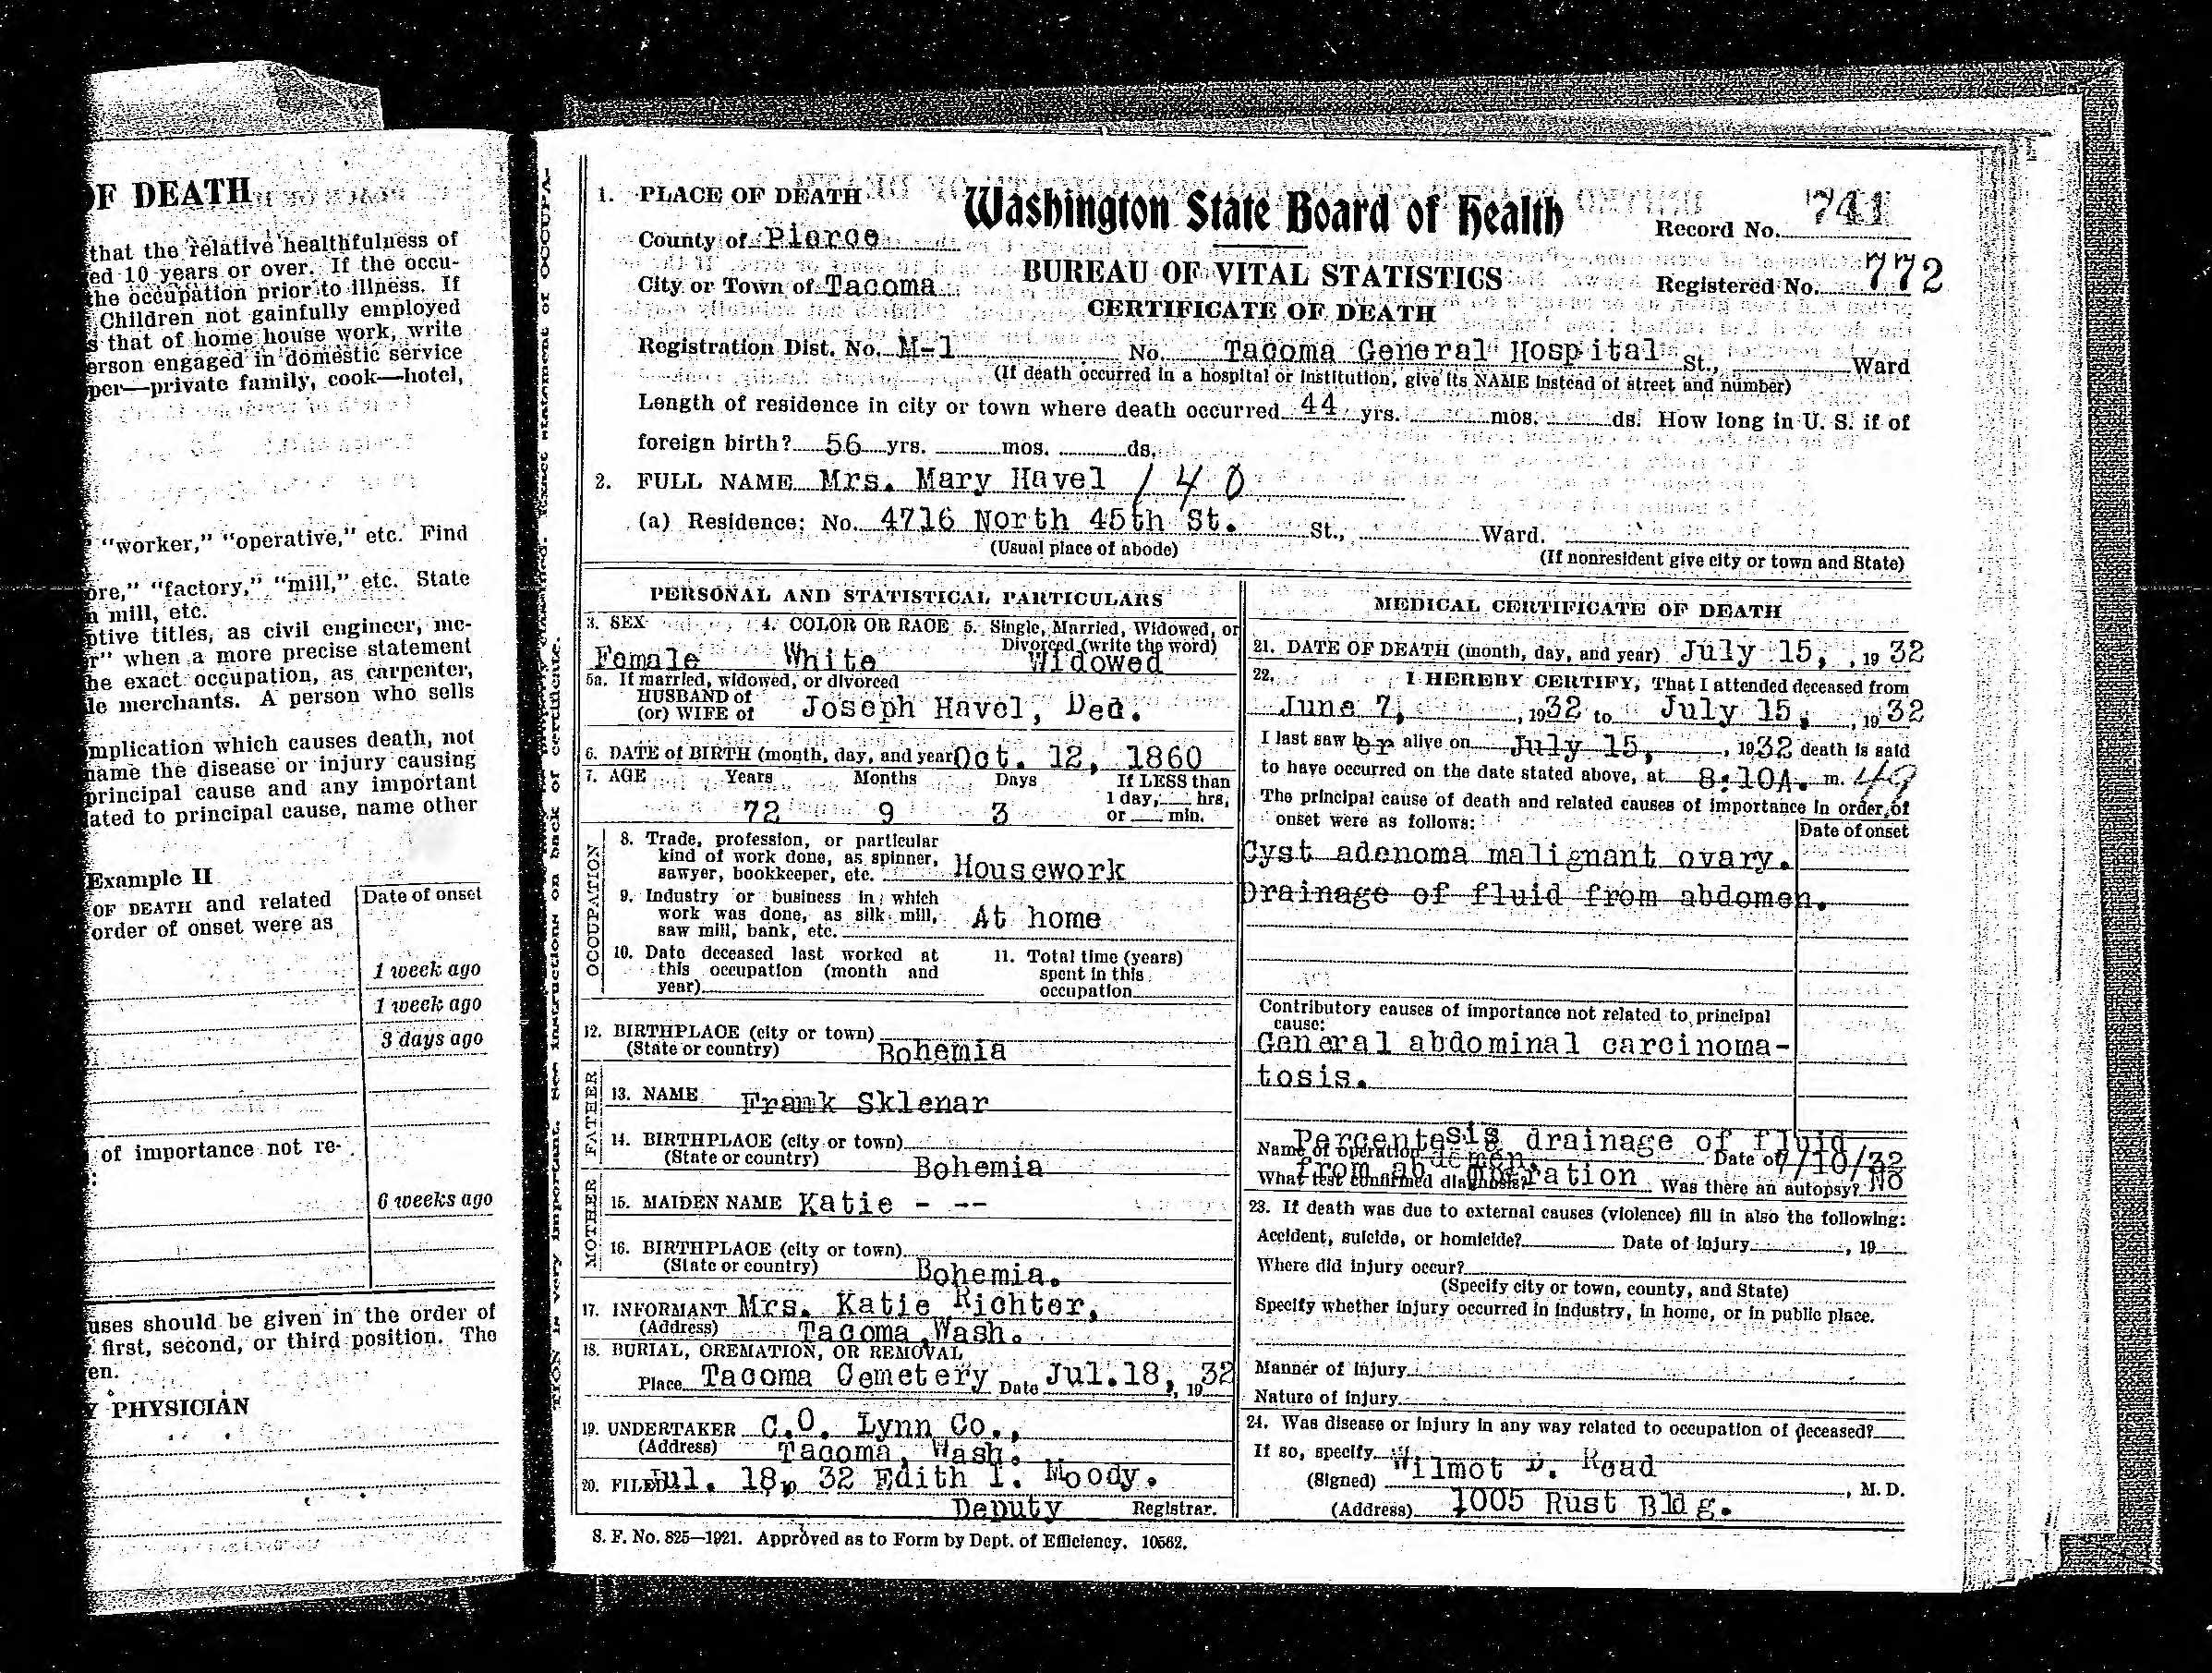 OF DEATH
that the relative healthfulness of
ed 10 years or over. If the occu-
the occupation prior to illness. If
Children not gainfully employed
s that of home house work, write
erson engaged in domestic service
per—private family, cook—hotel,
"worker," "operative," etc. Find
ore," "factory," "mill," etc. State
a mill, etc.
ptive titles, as civil engineer, me-
r" when a more precise statement
he exact occupation, as carpenter,
le merchants. A person who sells
mplication which causes death, not
name the disease or injury causing
principal cause and any important
lated to principal cause, name other
Example II
OF DEATH and related Date of onset
order of onset were as
1 week ago
1 week ago
3 days ago
of importance not re-
:
6 weeks ago
uses should be given in the order of
first, second, or third position. The
en.
Y PHYSICIAN
TION is very important. See instructions on back of certificate.
Exact statement of OCCUPA-
1. PLACE OF DEATH
Washington State Board of Health
Record No. 741
County of Pierce
BUREAU OF VITAL STATISTICS
City or Town of Tacoma
Registered No. 772
CERTIFICATE OF DEATH
Registration Dist. No. M-1 No. Tacoma General Hospital St., Ward
(If death occurred in a hospital or institution, give its NAME instead of street and number)
Length of residence in city or town where death occurred 44 yrs. mos. ds. How long in U. S. if of
foreign birth? 56 yrs. mos. ds.
2. FULL NAME Mrs. Mary Havel 140
(a) Residence: No. 4716 North 45th St. St., Ward.
(Usual place of abode) (If nonresident give city or town and State)
PERSONAL AND STATISTICAL PARTICULARS
3. SEX 4. COLOR OR RACE 5. Single, Married, Widowed, or
Divorced (write the word)
Female White Widowed
5a. If married, widowed, or divorced
HUSBAND of
(or) WIFE of Joseph Havel, Ded.
6. DATE of BIRTH (month, day, and year) Oct. 12, 1860
7. AGE Years Months Days If LESS than
1 day, hrs,
72 9 3 or min.
OCCUPATION
8. Trade, profession, or particular
kind of work done, as spinner,
sawyer, bookkeeper, etc. Housework
9. Industry or business in which
work was done, as silk mill,
saw mill, bank, etc. At home
10. Date deceased last worked at
this occupation (month and
year)
11. Total time (years)
spent in this
occupation
12. BIRTHPLACE (city or town)
(State or country) Bohemia
FATHER
13. NAME Frank Sklenar
14. BIRTHPLACE (city or town)
(State or country) Bohemia
MOTHER
15. MAIDEN NAME Katie - --
16. BIRTHPLACE (city or town)
(State or country) Bohemia.
17. INFORMANT Mrs. Katie Richter,
(Address) Tacoma, Wash.
18. BURIAL, CREMATION, OR REMOVAL
Place Tacoma Cemetery Date Jul. 18, 1932
19. UNDERTAKER C.O. Lynn Co.,
(Address) Tacoma, Wash.
20. FILED Jul. 18, 32 Edith I. Moody.
Deputy Registrar.
MEDICAL CERTIFICATE OF DEATH
21. DATE OF DEATH (month, day, and year) July 15, , 1932
22. I HEREBY CERTIFY, That I attended deceased from
June 7, , 1932 to July 15, , 1932
I last saw her alive on July 15, , 1932 death is said
to have occurred on the date stated above, at 8:10A. m. 49
The principal cause of death and related causes of importance in order of
onset were as follows:
Date of onset
Cyst adenoma malignant ovary.
Drainage of fluid from abdomen.
Contributory causes of importance not related to principal
cause:
General abdominal carcinoma-
tosis.
Percentesis drainage of fluid
Name of operation Date of 7/10/32
from abdomen.
What test confirmed diagnosis? Operation Was there an autopsy? No
23. If death was due to external causes (violence) fill in also the following:
Accident, suicide, or homicide? Date of injury , 19
Where did injury occur?
(Specify city or town, county, and State)
Specify whether injury occurred in industry, in home, or in public place.
Manner of injury
Nature of injury
24. Was disease or injury in any way related to occupation of deceased?
If so, specify
(Signed) Wilmot D. Read , M. D.
(Address) 1005 Rust Bldg.
S. F. No. 825—1921. Approved as to Form by Dept. of Efficiency. 10562.